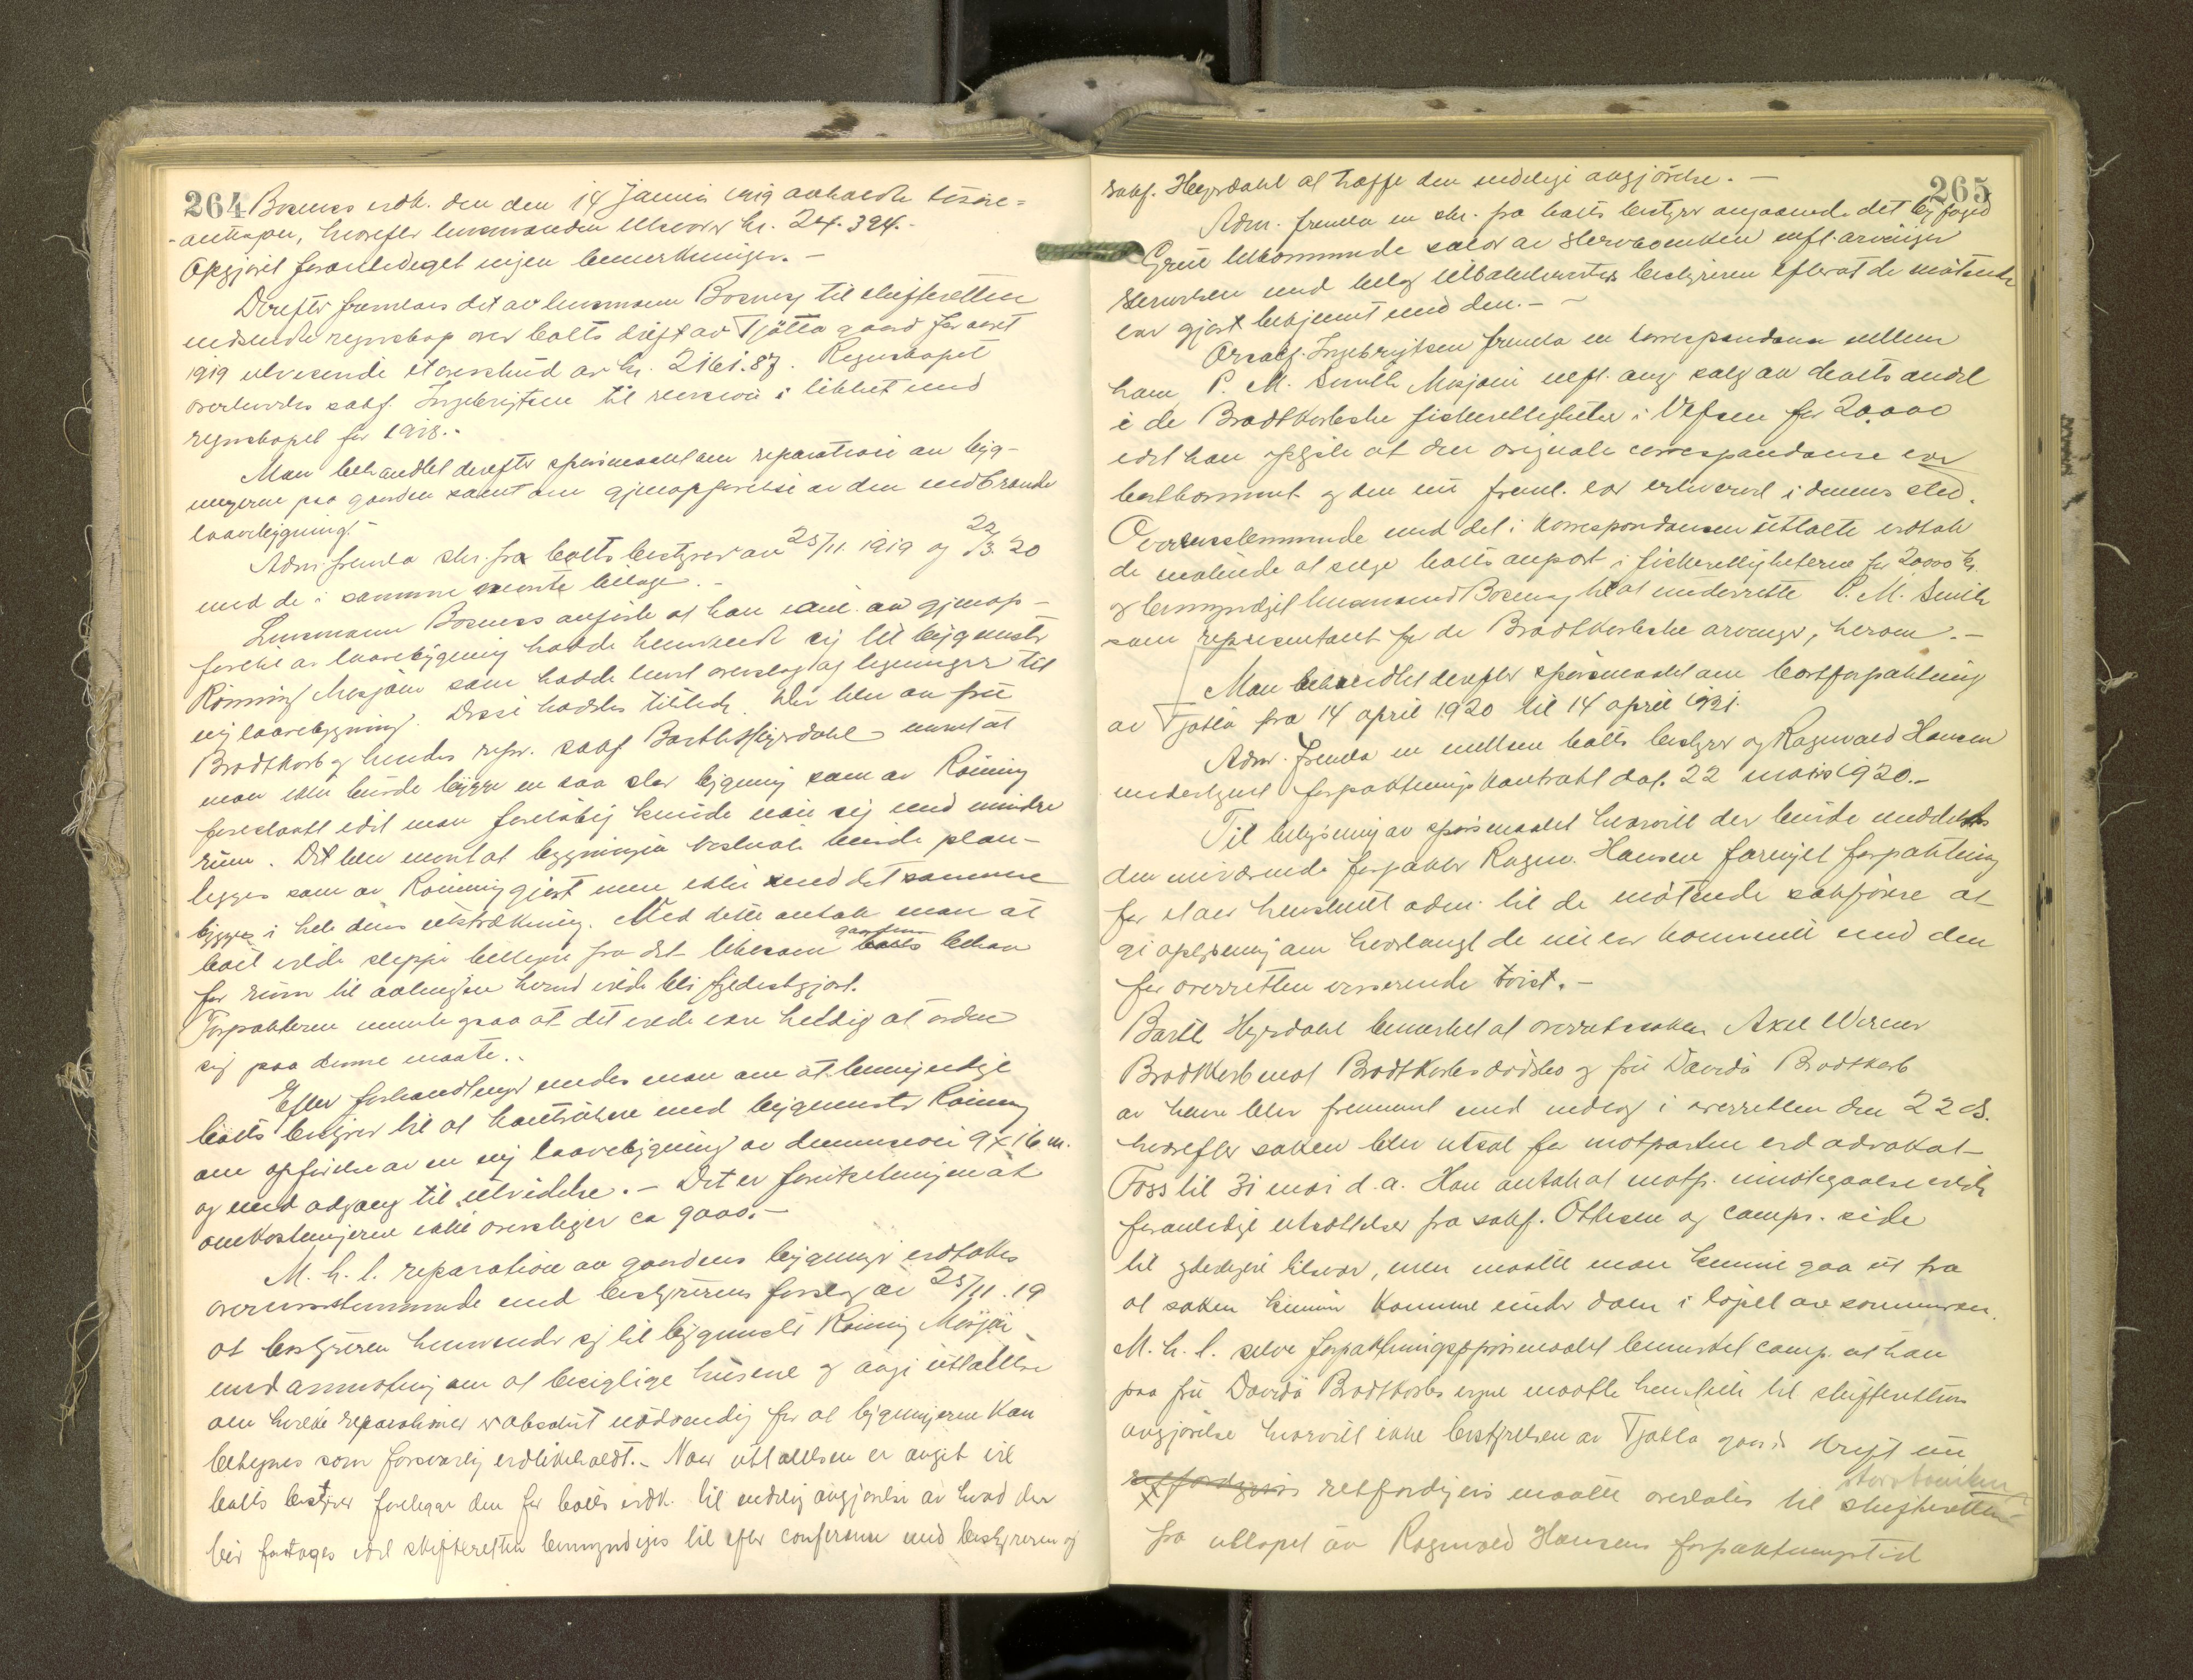 264 Bosnes vedk. den den 14 januar 1919 avholdte løsøre-
-auktion, hvorefter lensmanden tilsvarer kr. 24.394.-
Opgjøret foranlediget ingen bemerkninger.-
Derefter fremlaes det av lensmann Bosnes til skifteretten
indsendte regnskap over boets drift av Tjøtta gaard for aaret
1919 utvisende et overskud av kr. 2161.87. Regnskapet
overleverdes sakf. Ingebrigtsen til revision i likhet med
regnskapet for 1918.-
Man behandlet derefter spørsmaalet om reparation av byg-
ningerne paa gaarden samt om gjenopførelse av den nedbrændte
laavebygning.-
Adm. fremla skr. fra boets bestyrer av 25/11. 1919 og 22/3. 20
med de i samme nævnte bilage.-
Lensmann Bosness anførte at han ang. gjenop-
førelse av laavebygning hadde henvendt sig til bygmester
Rønning Mosjøen som hadde levert overslag og tegninger til
ny laavebygning. Disse hadde tilstede. Der blev av fru
Brodtkorb og hendes repr. sakf Barth Heyerdahl nevnt at
man ikke burde bygge en saa stor bygning som av Rønning
foreslaatt idet man foreløbig kunde nøie sig med mindre
rum. Det blev nevnt at bygningen burde plan-
legges som av Rønning gjort men ikke med det samme
bygges i hele dens utstrækning. Med dette antok man at
boet vilde slippe billigere fra det likesom gaardens boets behov
for rum til avlingen herved vilde bli fyldestgjort.
Forpakteren mente ogsaa at det vilde være heldig at ordne
sig paa denne maate.-
Efter forhandlinger enedes man om at bemyndige
boets bestyrer til at kontrahere med bygmester Rønning
om opførelse av en ny laavebygning av dimension 9 x 16 m.
og med adgang til utvidelse.- Det er forutsetningen at
omkostningerne ikke overstiger ca 9000.-
M. h. t. reparation av gaardens bygninger vedtokes
overensstemmende med bestyrerens forslag av 25/11.19
at bestyreren henvender sig til bygmester Rønning Mosjøen
med anmodning om at besigtige husene og avgi uttalelse
om hvilke reparationer er absolut nødvendig for at bygningerne kan
betegnes som forsvarlig vedlikeholdt.- Naar uttalelsen er avgit vil
boets bestyrer forelegge den for boets vedk. til endelig avgjørelse av hvad der
bør foretages idet skifteretten bemyndiges til efter conferanse med bestyreren og
265
sakf. Heyerdahl at træffe den endelige avgjørelse.-
Adm. fremla en skr. fra boets bestyrer angaaende det byfoged
Grüe tilkommende salær av
med bilag tilbakeleverter bestyreren efterat de møtende
var gjort bekjent med den.-
Orsakf. Ingebrigtsen fremla en korrespondance mellem
ham, P. M. Smith Mosjøen ang salg av boets andel
i de Brodtkorbske fiskerettigheter i Vefsen for 20.000
idet han oplyste at den originale correspondanse var
bortkommet og den nu freml. var erhvervet i dennes sted.
Overensstemmende med det i korrespondansen uttalte vedtok
de møtende at selge boets anpart i fiskerettigheterne for 20000 kr.
og bemyndiget lensmand Bosnes til at underrette P. M. Smith
som representant for de Brodtkorbske arvinger, herom.-
Man behandlet derefter spørsmaalet om bortforpaktning
av Tjøtta fra 14 april 1920 til 14 april 1921.
Adm. fremla en mellem boets bestyrer og Ragnvald Hansen
undertegnet forpaktningskontrakt dat. 22 mars 1920.-
Til belysning av spørsmaalet hvorvidt der burde meddeles
den nuværende forpakter Ragnv. Hansen fornyet forpaktning
for et aar henstillet adm. til de møtende sakførere at
gi oplysning om hvorlangt de nu var kommet med den
for overretten verserende tvist.-
Barth Heyerdahl bemerket at overretssaken Axel Werner
Brodtkorb mot Brodtkorbs dødsbo og fru Davida Brodtkorb
av ham blev fremmet med indlæg i overretten den 22 ds.
hvorefter saken blev utsat for motparten ved advokat
Foss til 31 mai d. a. Han antok at motp. imøtegaaelse vilde
foranledige utsættelser fra sakf. Ottesen og comps. side
til yderligere tilsvar, men maatte man kunne gaa ut fra
at saken kunde komme under dom i løpet av sommeren.
M. h. t. selve forpaktningsspørsmaalet bemerket comp. at han
paa fru Davida Brodtkorbs vegne maatte henstille til skifterettens
avgjørelse hvorvidt ikke bestyrelsen av Tjøtta gaards drift nu
retfordigvis retfærdigvis maatte overlates til skifteretten
fra utløpet av Ragnvald Hansens forpaktningstid